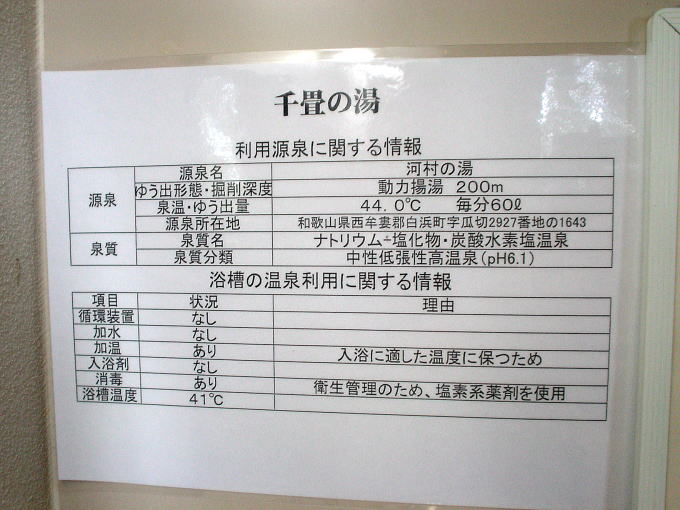 千畳の湯
利用源泉に関する情報
源泉 源泉名 河村の湯
ゆう出形態・掘削深度 動力揚湯 200m
泉温・ゆう出量 44.0℃ 毎分60ℓ
源泉所在地 和歌山県西牟婁郡白浜町字瓜切2927番地の1643
泉質 泉質名 ナトリウム-塩化物・炭酸水素塩温泉
泉質分類 中性低張性高温泉(pH6.1)
浴槽の温泉利用に関する情報
項目 状況 理由
循環装置 なし
加水 なし
加温 あり 入浴に適した温度に保つため
入浴剤 なし
消毒 あり 衛生管理のため、塩素系薬剤を使用
浴槽温度 41℃